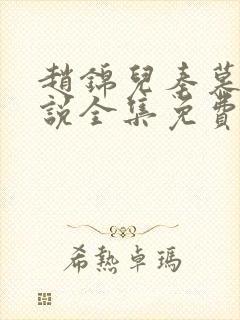 趙錦兒秦慕
說全集免費
希熱卓瑪